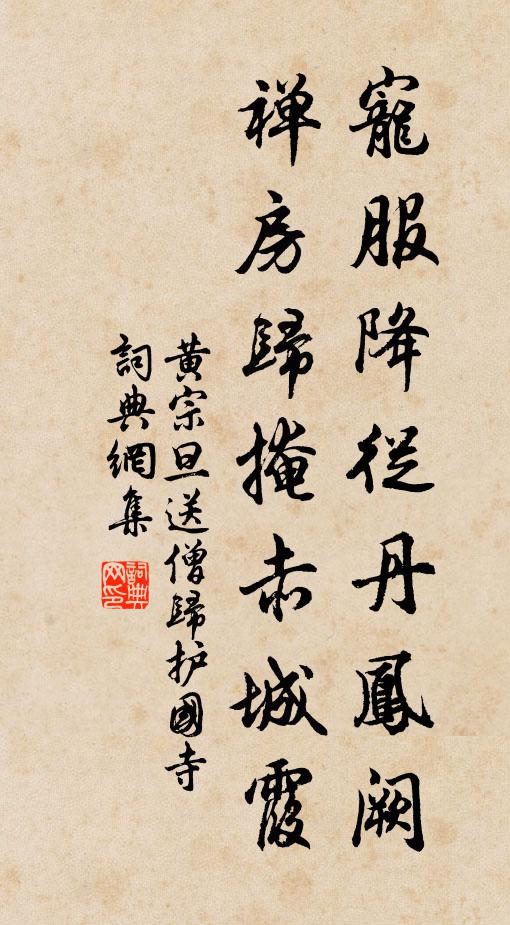 寵服降從丹鳳闕
禪房歸掩赤城霞
黄宗旦送僧歸护國寺
詞典網集
詞典网印